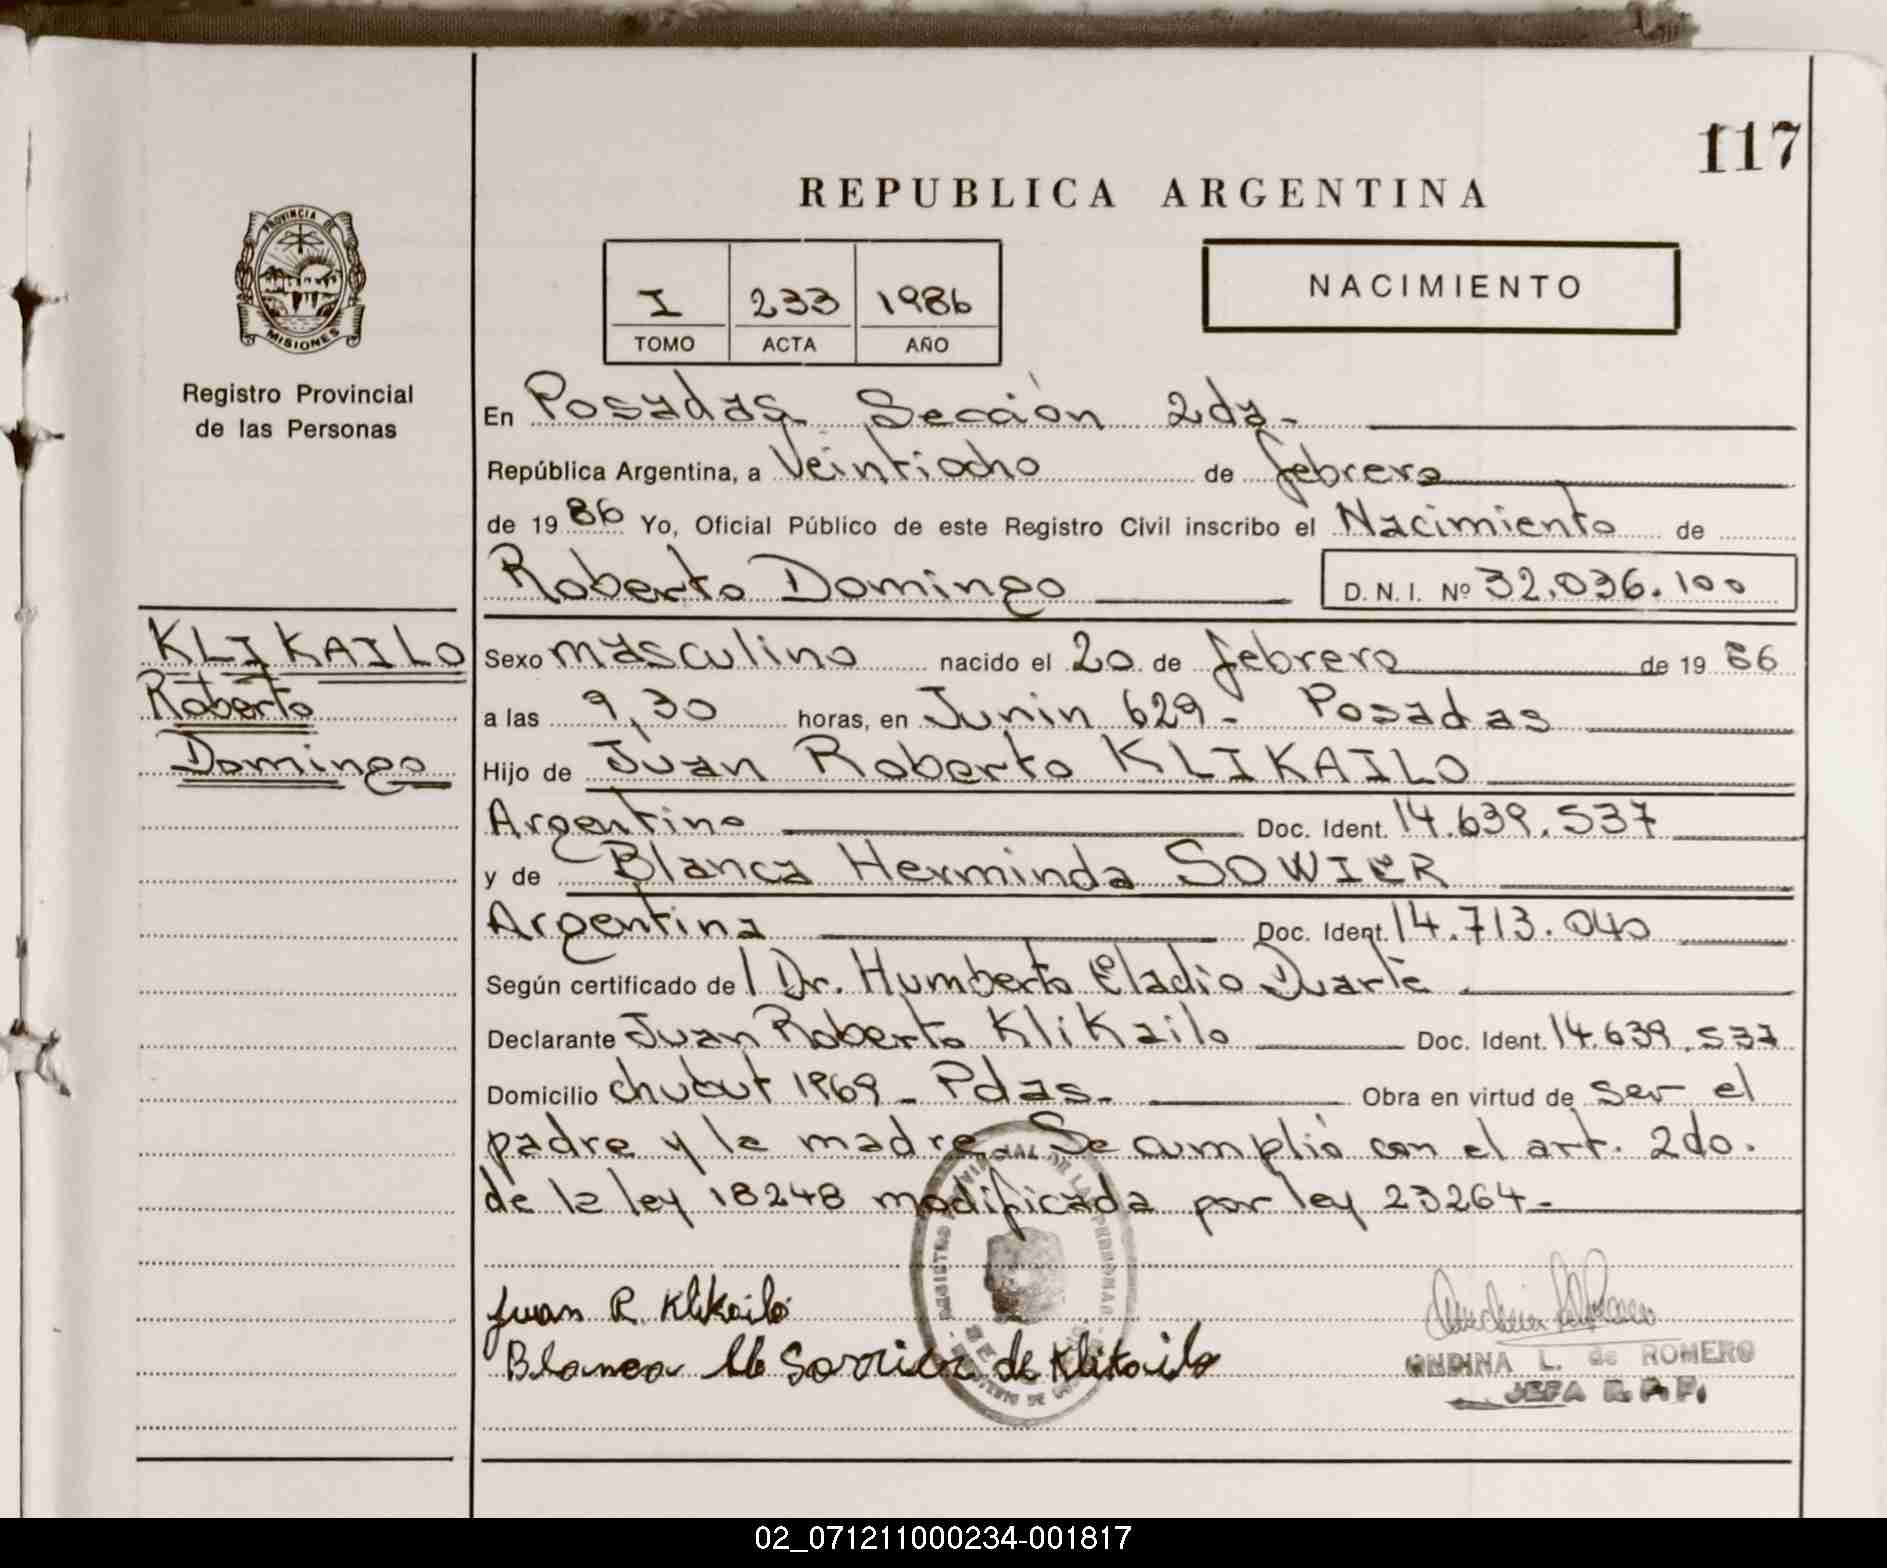 117
REPUBLICA ARGENTINA
PROVINCIA DE
MISIONES
Registro Provincial
de las Personas
I 233 1986
TOMO ACTA AÑO
NACIMIENTO
En Posadas Sección 2da-
República Argentina, a Veintiocho de febrero
de 1986 Yo, Oficial Público de este Registro Civil inscribo el Nacimiento de
Roberto Domingo D. N. I. Nº 32.036.100
KLIKAILO
Roberto
Domingo
Sexo masculino nacido el 20 de febrero de 1986
a las 9,30 horas, en Junin 629- Posadas
Hijo de Juan Roberto KLIKAILO
Argentino Doc. Ident. 14.639.537
y de Blanca Herminda SOWIER
Argentina Doc. Ident. 14.713.040
Según certificado del Dr. Humberto Eladio Duarte
Declarante Juan Roberto Klikailo Doc. Ident. 14.639.537
Domicilio chubut 1969 - Pdas. Obra en virtud de ser el
padre y la madre. Se cumplió con el art. 2do.
de la ley 18248 modificada por ley 23264-
Juan R. Klikailo
Blanca de Klikailo
ONDINA L. de ROMERO
JEFA R. P. P.
02_071211000234-001817